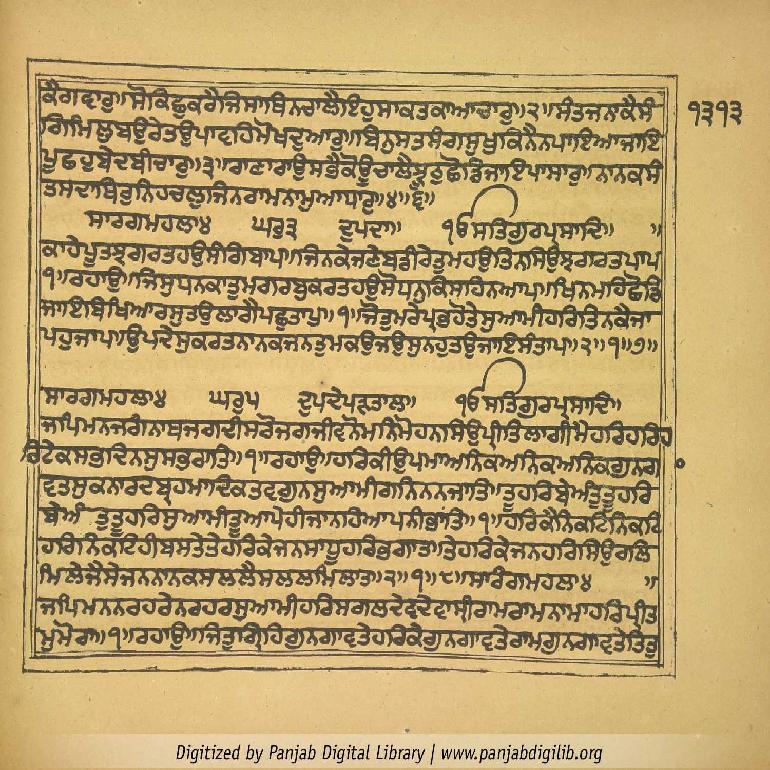 ਕੈਗਵਾਰੁ॥ਸੋਕਿਛੁਕਰੈਜਿਸਾਥਿਨਚਾਲੈਇਹੁਸਾਕਤਕਾਆਚਾਰੁ॥੨॥ਸੰਤਜਨਾਕੈਸੰ
੧੩੧੩
ਗਿਮਿਲੁਬਉਰੇਤਉਪਾਵਹਿਮੋਖਦੁਆਰੁ॥ਬਿਨੁਸਤਸੰਗਸੁਖੁਕਿਨੈਨਪਾਇਆਜਾਇ
ਪੂਛਹੁਬੇਦਬੀਚਾਰੁ॥੩॥ਰਾਣਾਰਾਉਸਭੈਕੋਊਚਾਲੈਝੂਠੁਛੋਡਿਜਾਇਪਾਸਾਰੁ॥ਨਾਨਕਸੰ
ਤਸਦਾਥਿਰੁਨਿਹਚਲੁਜਿਨਰਾਮਨਾਮੁਆਧਾਰੁ॥੪॥੬॥
ਸਾਰਗਮਹਲਾ੪ ਘਰੁ੩ ਦੁਪਦਾ॥ ੴਸਤਿਗੁਰਪ੍ਰਸਾਦਿ॥ ॥
ਕਾਹੇਪੂਤਝਗਰਤਹਉਸੰਗਿਬਾਪ॥ਜਿਨਕੇਜਣੇਬਡੀਰੇਤੁਮਹਉਤਿਨਸਿਉਝਗਰਤਪਾਪ
੧॥ਰਹਾਉ॥ਜਿਸੁਧਨਕਾਤੁਮਗਰਬੁਕਰਤਹਉਸੋਧਨੁਕਿਸਹਿਨਆਪ॥ਖਿਨਮਹਿਛੋਡਿ
ਜਾਇਬਿਖਿਆਰਸੁਤਉਲਾਗੈਪਛੁਤਾਪ॥੧॥ਜੋਤੁਮਰੇਪ੍ਰਭਹੋਤੇਸੁਆਮੀਹਰਿਤਿਨਕੈਜਾ
ਪਹੁਜਾਪ॥ਉਪਦੇਸੁਕਰਤਨਾਨਕਜਨਤੁਮਕਉਜਉਸੁਨਹੁਤਉਜਾਇਸੰਤਾਪ॥੨॥੧॥੭॥
ਸਾਰਗਮਹਲਾ੪ ਘਰੁ੫ ਦੁਪਦੇਪੜਤਾਲਾ॥ ੴਸਤਿਗੁਰਪ੍ਰਸਾਦਿ॥
ਜਪਿਮਨਜਗੰਨਾਥਜਗਦੀਸਰੋਜਗਜੀਵਨੋਮਨਿਮੋਹਨਸਿਉਪ੍ਰੀਤਿਲਾਗੀਮੈਹਰਿਹਰਿਹ
ਰਿਟੇਕਸਭਦਿਨਸੁਸਭਰਾਤਿ॥੧॥ਰਹਾਉ॥ਹਰਿਕੀਉਪਮਾਅਨਿਕਅਨਿਕਅਨਿਕਗੁਨਗਾ
ਵਤਸੁਕਨਾਰਦਬ੍ਰਹਮਾਦਿਕਤਵਗੁਨਸੁਆਮੀਗਨਿਨਨਜਾਤਿ॥ਤੂਹਰਿਬੇਅੰਤੁਤੂਹਰਿ
ਬੇਅੰ ਤੁਤੂਹਰਿਸੁਆਮੀਤੂਆਪੇਹੀਜਾਨਹਿਆਪਨੀਭਾਂਤਿ॥੧॥ਹਰਿਕੈਨਿਕਟਿਨਿਕਟਿ
ਹਰਿਨਿਕਟਹੀਬਸਤੇਤੇਹਰਿਕੇਜਨਸਾਧੂਹਰਿਭਗਾਤ॥ਤੇਹਰਿਕੇਜਨਹਰਿਸਿਉਰਲਿ
ਮਿਲੇਜੈਸੇਜਨਨਾਨਕਸਲਲੈਸਲਲਮਿਲਾਤ॥੨॥੧॥੮॥ਸਾਰੰਗਮਹਲਾ੪ ॥
ਜਪਿਮਨਨਰਹਰੇਨਰਹਰਸੁਆਮੀਹਰਿਸਗਲਦੇਵਦੇਵਾਸ੍ਰੀਰਾਮਰਾਮਨਾਮਾਹਰਿਪ੍ਰੀਤ
ਮੁਮੋਰਾ॥੧॥ਰਹਾਉ॥ਜਿਤੁਗ੍ਰਿਹਿਗੁਨਗਾਵਤੇਹਰਿਕੇਗੁਨਗਾਵਤੇਰਾਮਗੁਨਗਾਵਤੇਤਿਤੁ
Digitized by Panjab Digital Library | www.panjabdigilib.org